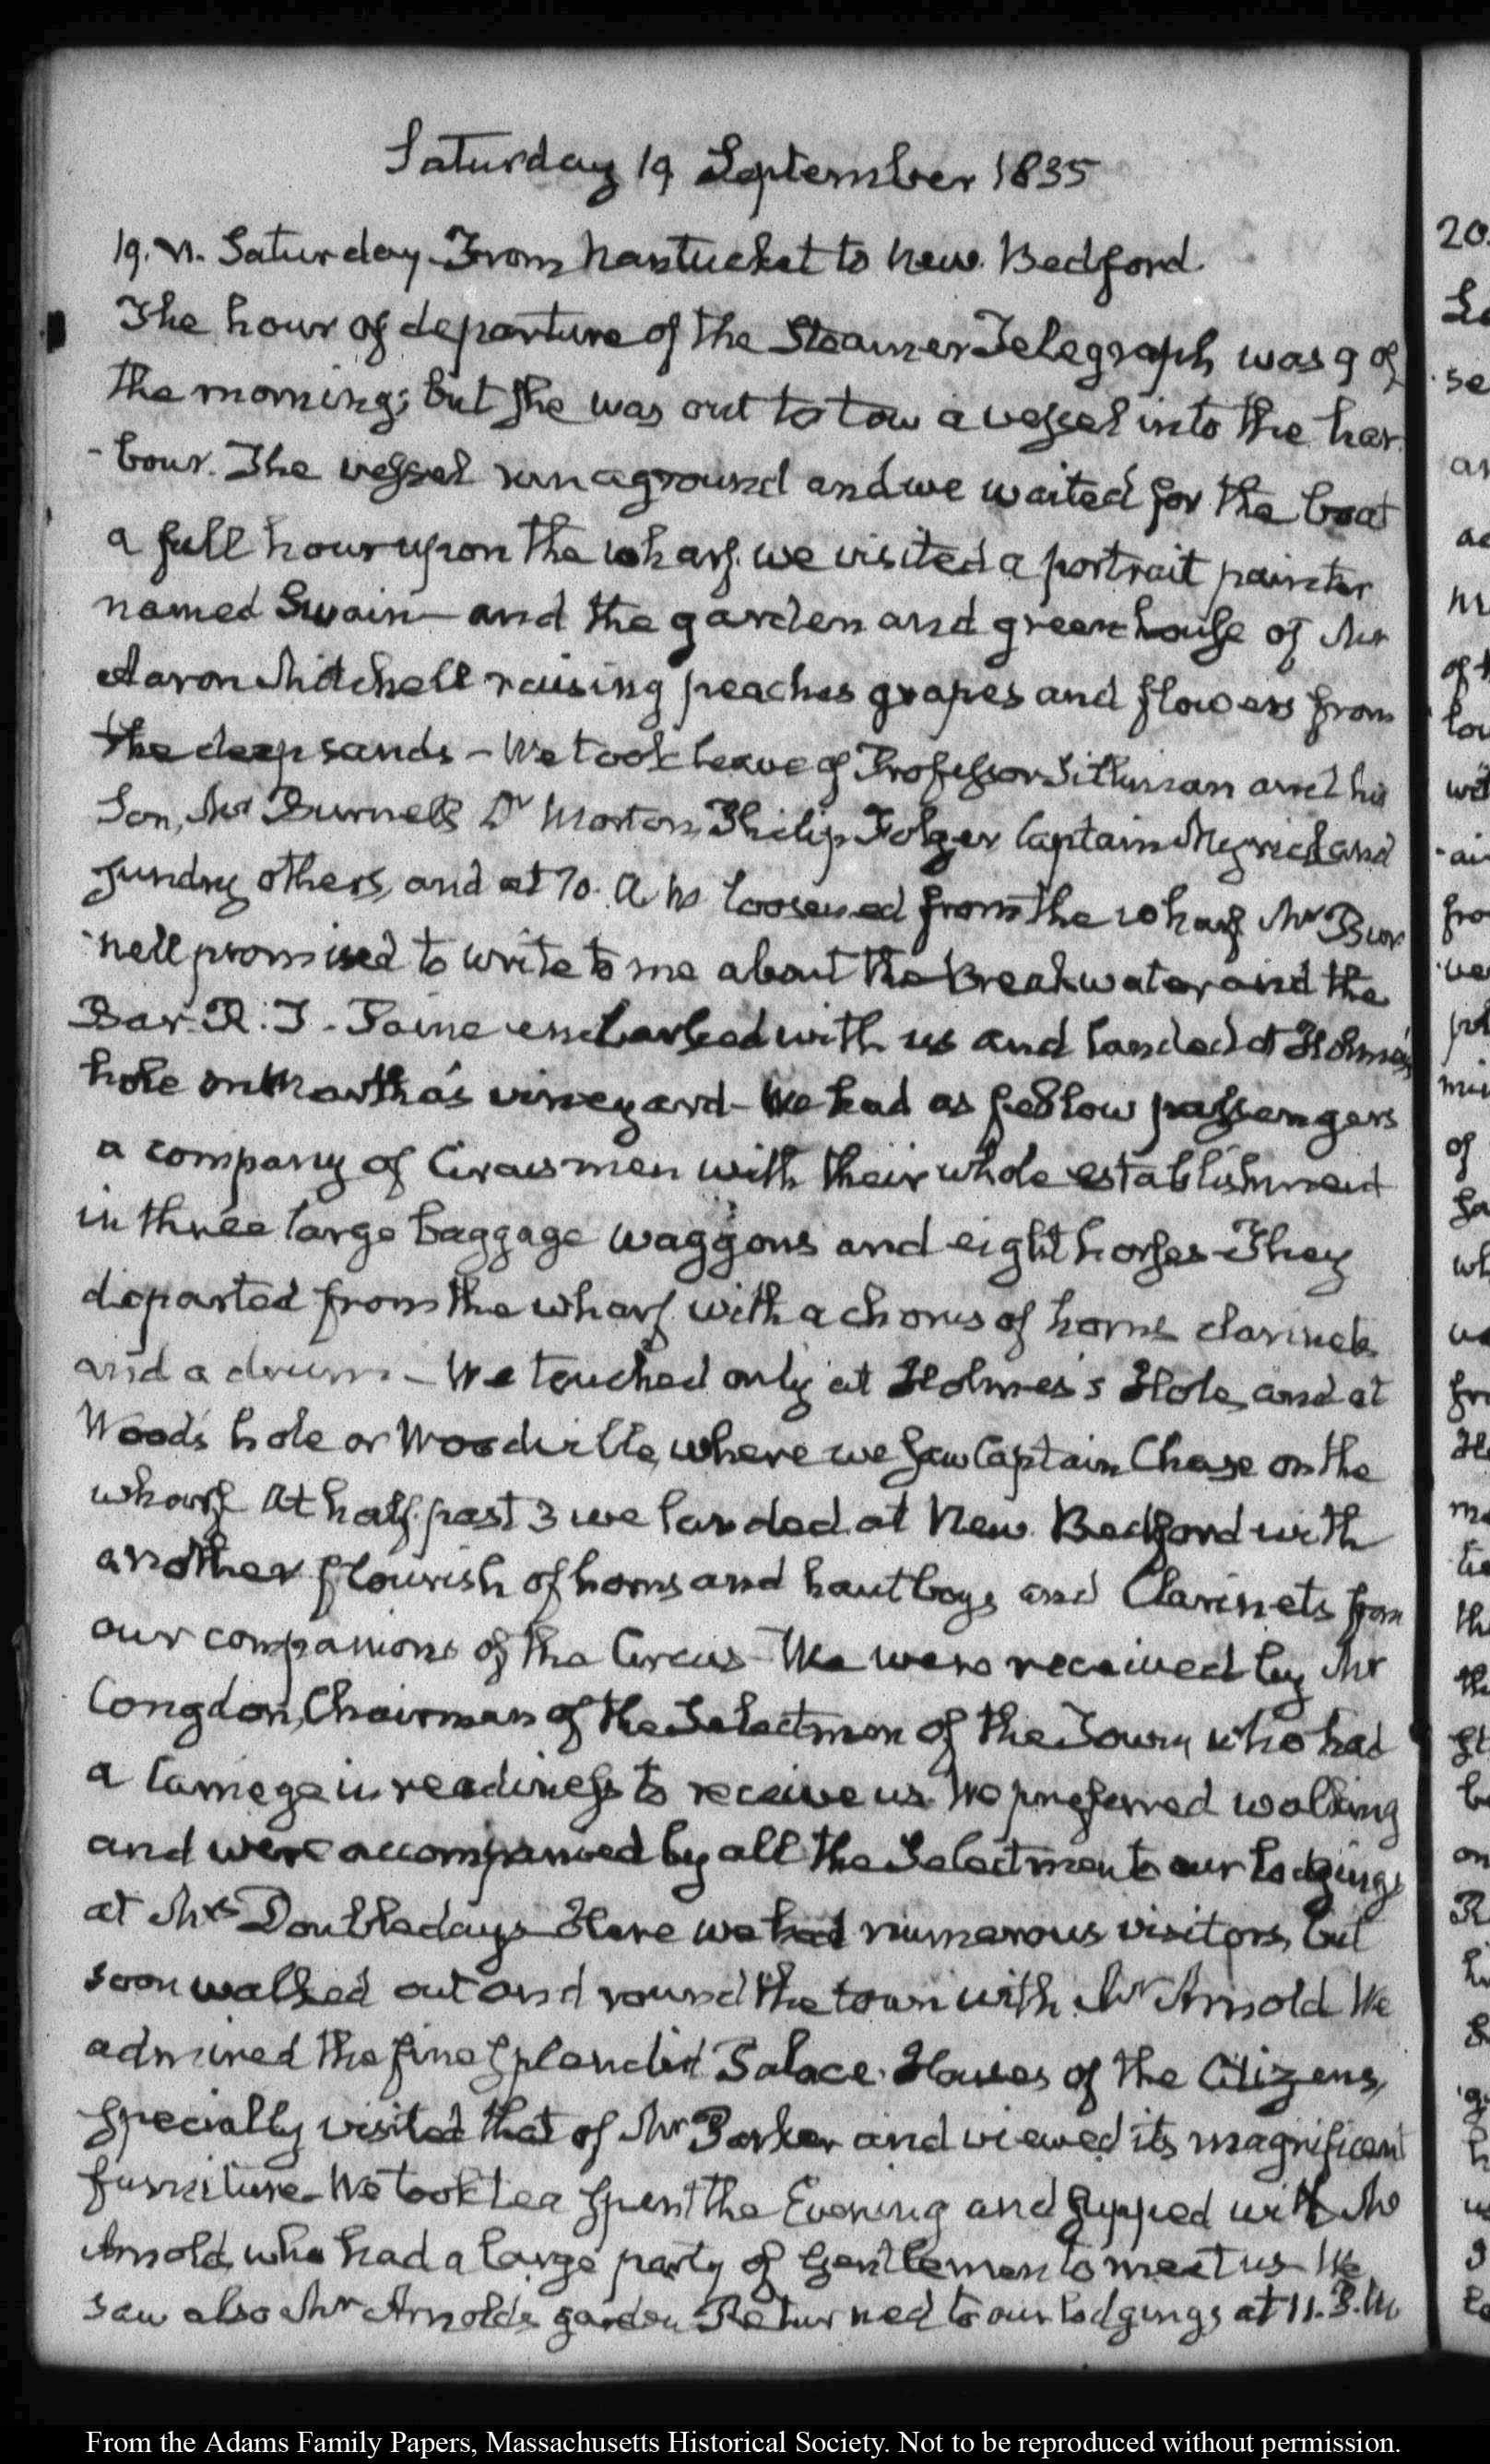 Saturday 19 September 1835
19. VI. Saturday. From Nantucket to New Bedford.
The hour of departure of the Steamer Telegraph was 9 of
the morning; but she was out to tow a vessel into the har-
-bour. The vessel run aground and we waited for the boat
a full hour upon the wharf. we visited a portrait painter
named Swain — and the garden and greenhouse of Mr
Aaron Mitchell raising peaches grapes and flowers from
the deep sands — We took leave of Professor Silliman and his
Son, Mr Burnell Dr Morton, Philip Folger Captain Myrick and
sundry others, and at 10. A.M. loosened from the wharf. Mr Bur-
-nell promised to write to me about the Breakwater and the
Bar. R. T. Paine embarked with us and landed at Holmes's
hole on Martha's vineyard — We had as fellow passengers
a company of Circus men with their whole establishment
in three large baggage waggons and eight horses — They
departed from the wharf with a chorus of horns clarinets
and a drum — We touched only at Holmes's Hole, and at
Wood's hole or Woodville, where we saw Captain Chase on the
wharf. At half past 3 we landed at New Bedford with
another flourish of horns and hautboys and Clarinets from
our companions of the Circus — We were received by Mr
Congdon, Chairman of the Selectmen of the Town who had
a Carriage in readiness to receive us. We preferred walking
and were accompanied by all the Selectmen to our lodgings
at Mrs Doubleday's — Here we had numerous visitors, but
soon walked out and round the town with Mr Arnold. We
admired the fine splendid Palace-Houses of the Citizens,
specially visited that of Mr Parker and viewed its magnificent
furniture — We took tea spent the Evening and supped with Mr
Arnold, who had a large party of Gentlemen to meet us — We
saw also Mr Arnold's garden — Returned to our lodgings at 11. P.M.
20.
From the Adams Family Papers, Massachusetts Historical Society. Not to be reproduced without permission.